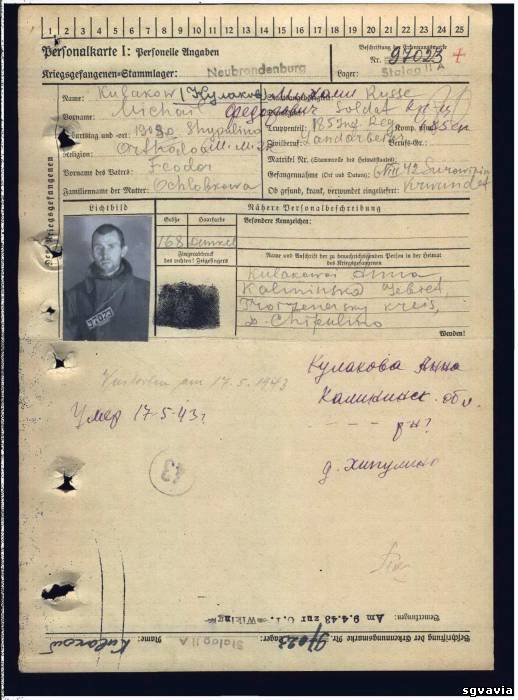 1 2 3 4 5 6 7 8 9 10 11 12 13 14 15 16 17 18 19 20 21 22 23 24 25
Personalkarte I: Personelle Angaben
Kriegsgefangenen-Stammlager: Neubrandenburg
Beschriftung der Erkennungsmarke
Nr. 97023 +
Lager: Stalag II A
Des Kriegsgefangenen
Name: Kulakow (Кулаков)
Vorname: Michail Федорович
Russe
Soldat
Truppenteil: 185 Inf Reg Komp. usw.:
Zivilberuf: Landarbeiter Berufs-Gr.:
Religion: Orthodox
Matrikel Nr. (Stammrolle des Heimatstaates):
Vorname des Vaters: Feodor
Gefangennahme (Ort und Datum): 6 VIII 42
Familienname der Mutter: Ochlobkowa
Ob gesund, krank, verwundet eingeliefert: Verwundet
Lichtbild
Nähere Personalbeschreibung
Größe Haarfarbe Besondere Kennzeichen:
168 dunkel
Fingerabdruck
des rechten! Zeigefingers
Name und Anschrift der zu benachrichtigenden Person in der Heimat
des Kriegsgefangenen
Kulakowa Anna
Kalininska Gebiet,
Kreis,
D. Chipulino
Wenden!
Кулакова Анна
Verstorben am 17.5.1943
Калининск. обл.
Умер 17-5-43г
р-н?
д. Хипулино
43
Bemerkungen: Am 9.4.43 zur O.T. Wiking
Beschriftung der Erkennungsmarke Nr. 97023 Lager: Stalag II A Name: Kulakow
sgvavia